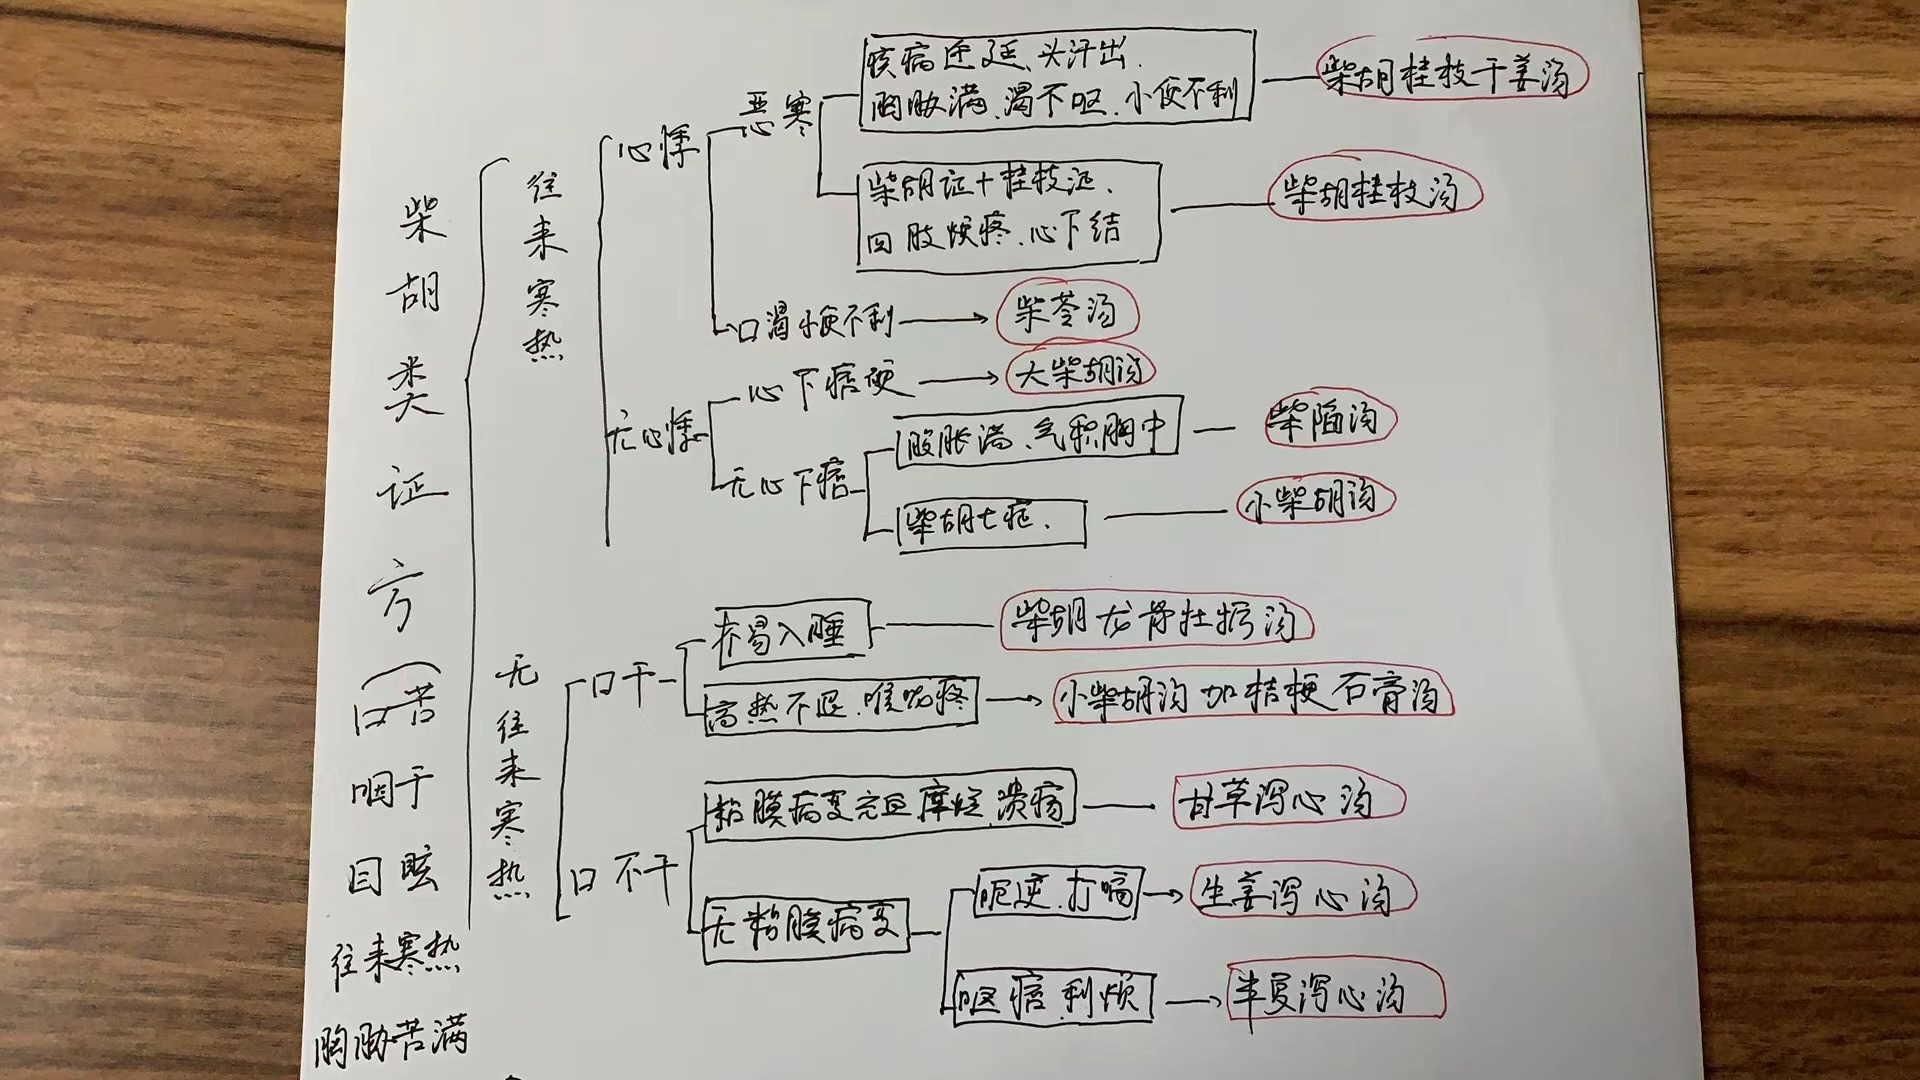 柴胡类证方
(口苦
咽干
目眩
往来寒热
胸胁苦满
往来寒热
心悸
恶寒
疾病迁延、头汗出.
胸胁满、渴不呕、小便不利
柴胡桂枝干姜汤
柴胡证+桂枝证、
四肢烦疼、心下结
柴胡桂枝汤
口渴小便不利
柴苓汤
无心悸
心下痞硬
大柴胡汤
无心下痞
腹胀满、气积胸中
柴陷汤
柴胡七症.
小柴胡汤
无往来寒热
口干
不易入睡
柴胡龙骨牡蛎汤
高热不退、喉咙疼
小柴胡汤加桔梗石膏汤
口不干
粘膜病变充血糜烂、溃疡
甘草泻心汤
无粘膜病变
呃逆、打嗝
生姜泻心汤
呕痞利烦
半夏泻心汤